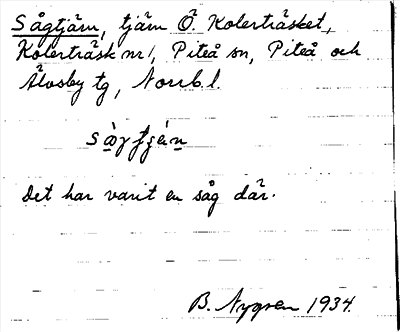 Sågtjärn, tjärn Ö Kolerträsket,
Kolerträsk nr 1, Piteå sn, Piteå och
Älvsby tg, Norrb. l.
Det har varit en såg där.
B. Nygren 1934.